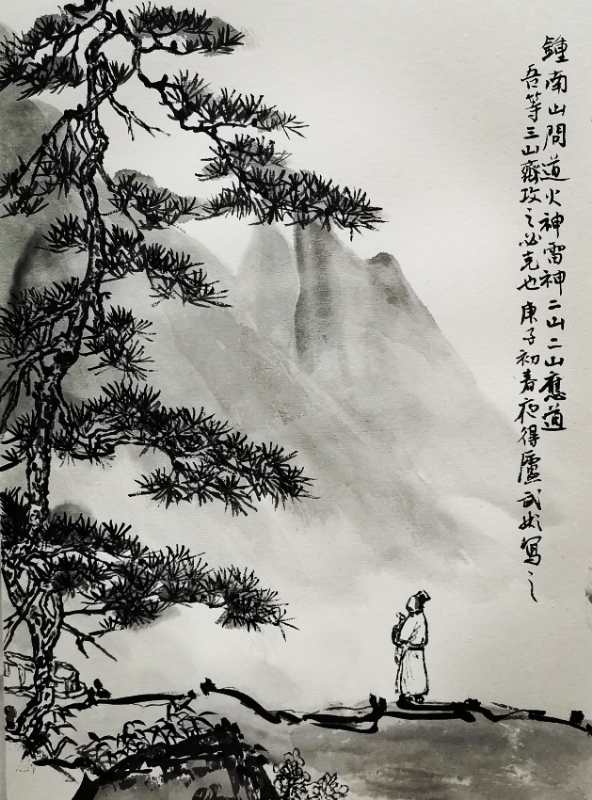 鍾南山問道火神雷神二山二山應道
吾等三山齊攻之必克也庚子初春夜得廬武彬寫之